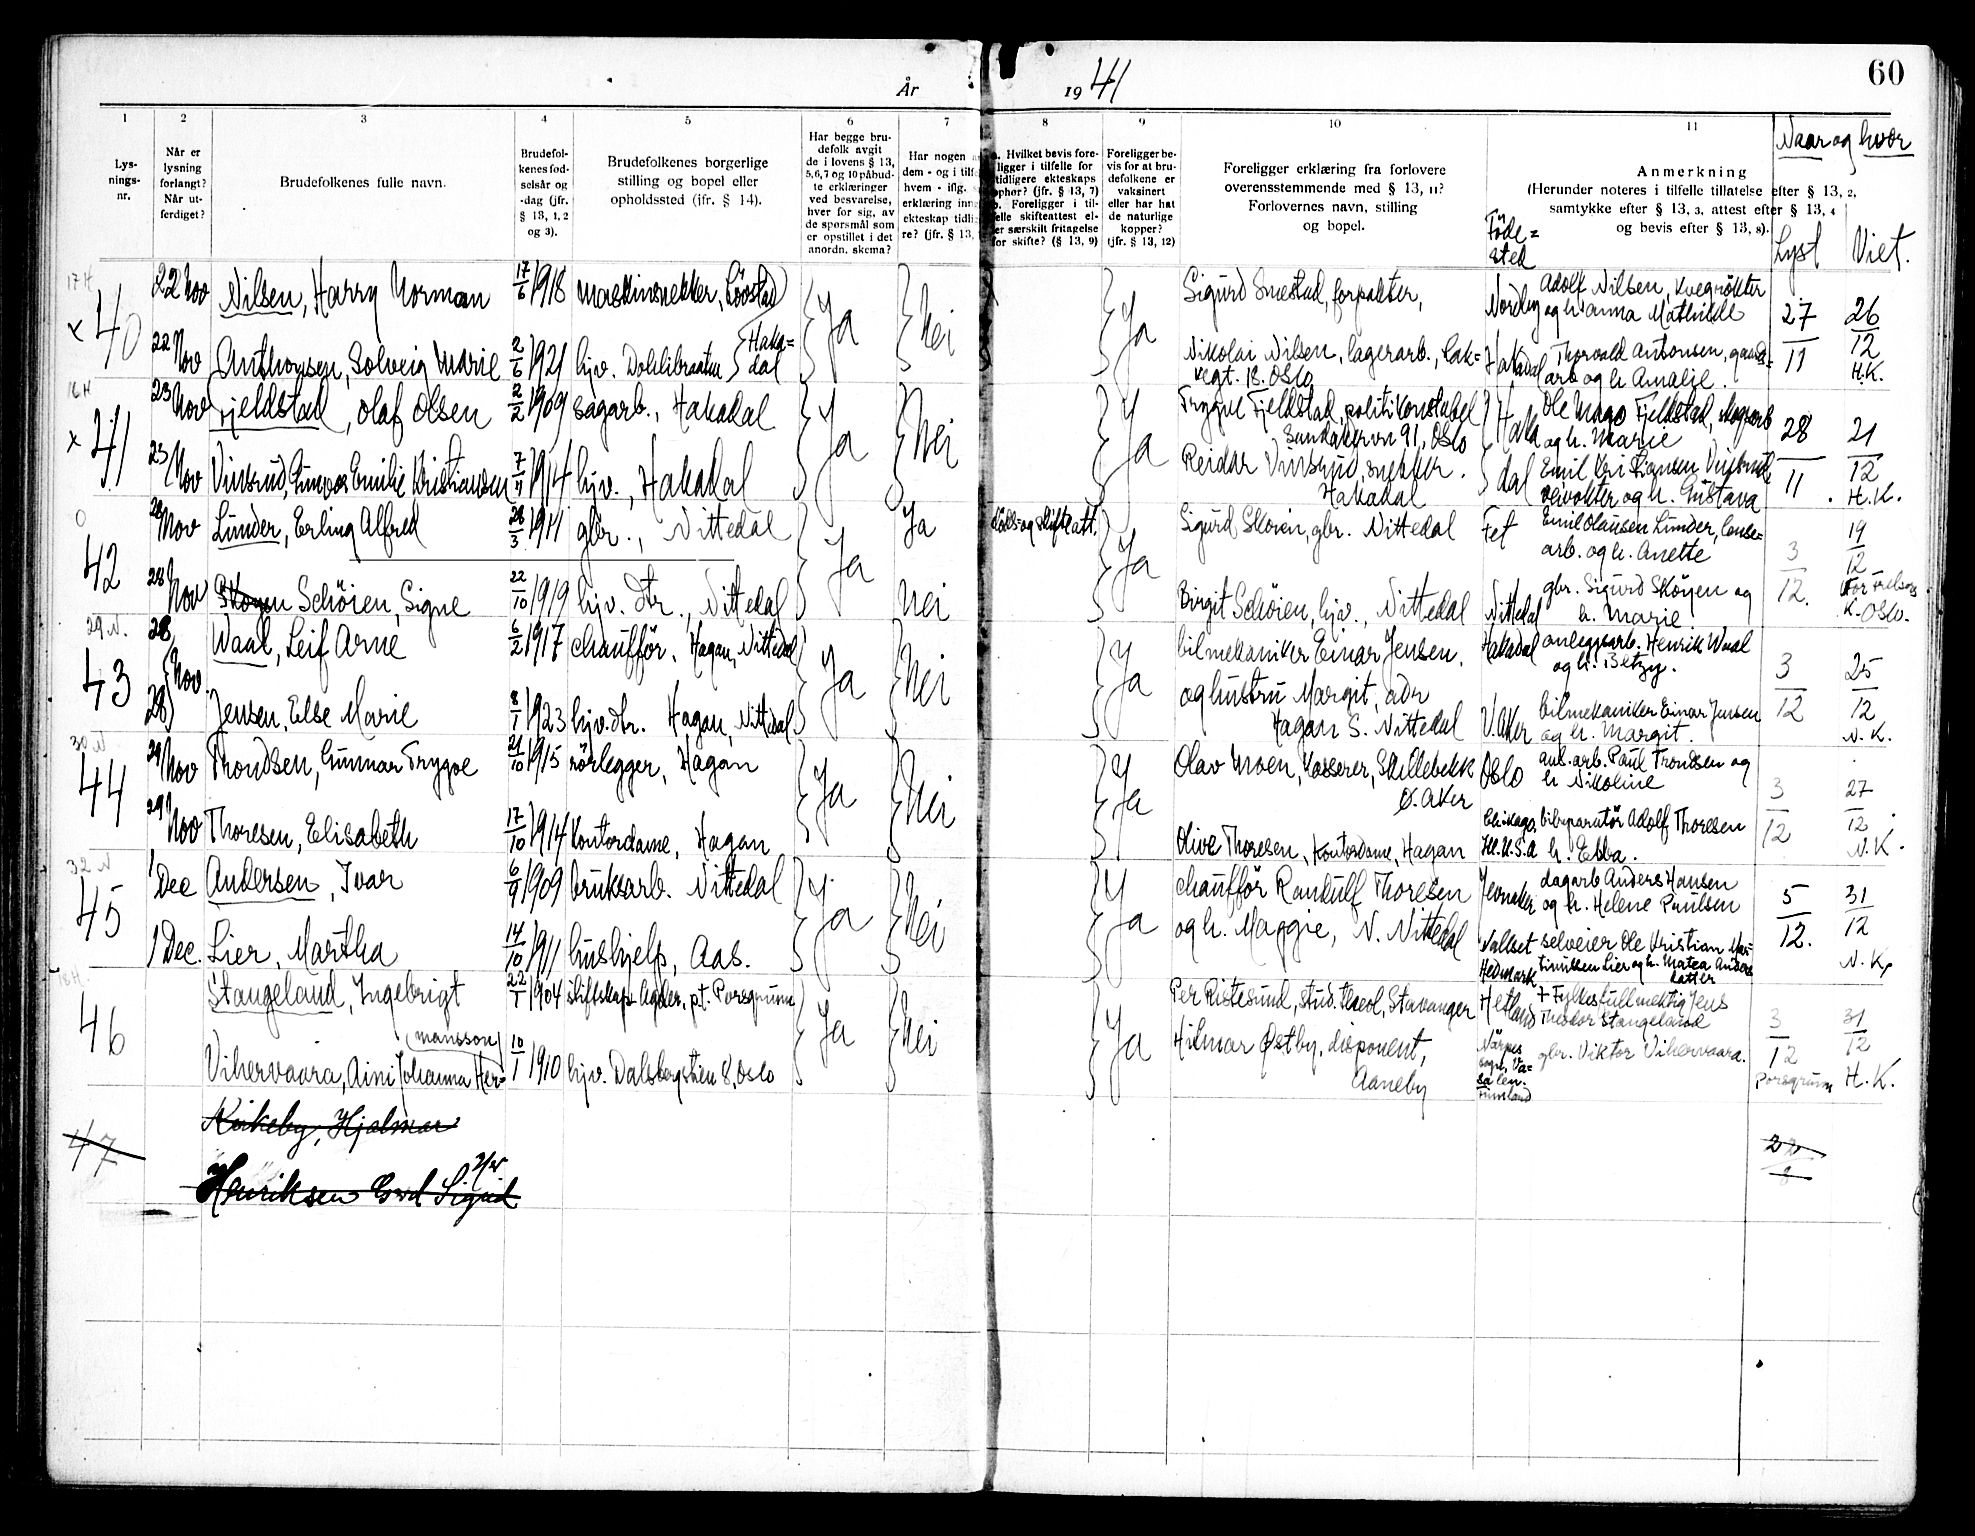 År 1941
60
1 2 3 4 5 6 7 8 9 10 11
Lysningsnr.
Når er lysning forlangt? Når utferdiget?
Brudefolkenes fulle navn.
Brudefolkenes fødselsår og -dag (jfr. § 13, 1, 2 og 3).
Brudefolkenes borgerlige stilling og bopel eller opholdssted (jfr. § 14).
Har begge brudefolk avgitt de i lovens § 13, 5, 6, 7 og 10 påbudte erklæringer ved besvarelse, hver for sig, av de spørsmål som er opstillet i det anordn. skema?
Har nogen dem - og i tilf hvem - iflg. erklæring inn ekteskap tidli re? (jfr. § 13,
Hvilket bevis foreligger i tilfelle for tidligere ekteskaps ophør? (jfr. § 13, 7)
Foreligger i tilfelle skifteattest eller særskilt fritagelse for skifte? (§ 13, 9)
Foreligger bevis for at brudefolkene er vaksinert eller har hat de naturlige kopper? (jfr. § 13, 12)
Foreligger erklæring fra forlovere overensstemmende med § 13, 11? Forlovernes navn, stilling og bopel.
Anmerkning
(Herunder noteres i tilfelle tillatelse efter § 13, 2, samtykke efter § 13, 3, attest efter § 13, 4 og bevis efter § 13, 8).
Føde=sted
Naar og hvor
Lyst Viet.
17 H
x 40 22 Nov Nilsen, Harry Norman 17/6 1918 maskinsnekker, Løvstad Ja Nei Ja Sigurd Smestad, forpakter, Nordby Adolf Nilsen, kvegrøkter og h. Anna Mathilde 27/11 26/12 H.K.
22 Nov Anthonsen, Solveig Marie 2/6 1921 hjv. Dohlibraaten Haka=dal Nikolai Nilsen, lagerarb., Oslo Hakadal Thorvald Antonsen, gaards=arb og h. Amalie.
16 H
x 41 23 Nov Fjeldstad, Olaf Olsen 2/2 1909 sagarb., Hakadal Ja Nei Ja Trygve Fjeldstad, politikonstabel Sandakervn 91, Oslo Hakadal Ole Mago Fjeldstad, skogarb og h. Marie 28/11 21/12 H.K.
23 Nov Vinsrud, Gunvor Emilie Kristiansen 7/11 1914 hjv., Hakadal Reidar Vinsrud, snekker. Hakadal Emil Kristiansen Vinsrud veivokter og h. Gustava
0
42 28 Nov Linder, Erling Alfred 28/3 1911 gbr., Nittedal Ja Ja Døds- og skifteatt. Ja Sigurd Skøien, gbr. Nittedal Fet Emil Olausen Linder, lense=arb. og h. Anette 3/12. 19/12 Vor Frelsers K. Oslo.
28 Nov Skøyen Schöien, Signe 22/10 1919 hjv. dtr., Nittedal Nei Birgit Schöien, hjv., Nittedal Nittedal gbr. Sigurd Skøyen og h. Marie.
29 N.
43 28 Nov. Waal, Leif Arne 6/2 1917 chaufför, Hagan, Nittedal Ja Nei Ja bilmekaniker Einar Jensen, Hakadal anleggsarb. Henrik Waal og h. Betzy. 3/12 25/12 N.K.
28 Jensen, Else Marie 8/1 1923 hjv. dtr. Hagan, Nittedal. og hustru Margit, adr Hagan S. Nittedal V. Aker bilmekaniker Einar Jensen og h. Margit.
30 N.
44 29 Nov Trondsen, Gunnar Trygve 21/10 1915 rørlegger, Hagan Ja Nei Ja Olav Moen, kasserer, Skillebekk Ø. Aker Oslo anl. arb. Paul Trondsen og h. Nikoline 3/12 27/12 N.K.
29 Nov Thoresen, Elisabeth 17/10 1914 Kontordame, Hagan Olive Thoresen, Kontordame, Hagan Chikago, Ill. U.S.A bilreparatør Adolf Thoresen h. Ebba.
32 N
45 1 Dec Andersen, Ivar 6/9 1909 bruksarb. Nittedal Ja Nei Ja chaufför Randulf Thoresen Jevnaker dagarb Anders Hansen og h. Helene Paulsen 5/12. 31/12 N.K.
1 Dec. Lier, Martha 14/10 1911 hushjelp, Aas. og h. Maggie, N. Nittedal Vallset Hedmark selveier Ole Kristian Martinusen Lier og h. Matea Anders datter
18 H.
46 Stangeland, Ingebrigt 22/1 1904 skiftskap. Agder, p.t. Porsgrunn Ja Nei Ja Per Ristesund, stud. theol, Stavanger Hetland † Fylkesfullmektig Jens Theodor Stangeland 3/12 Porsgrunn 31/12 H.K.
Vihervaara, Aini Johanna Her=mansson 10/1 1910 hjv. Dalsbergstien 8, Oslo Hilmar Østby, disponent, Aaneby Närpes sogn, Va=sa len. Finnland gbr. Viktor Vihervaara.
47 Kirkeby, Hjalmar
Henriksen Gerd Sigrid